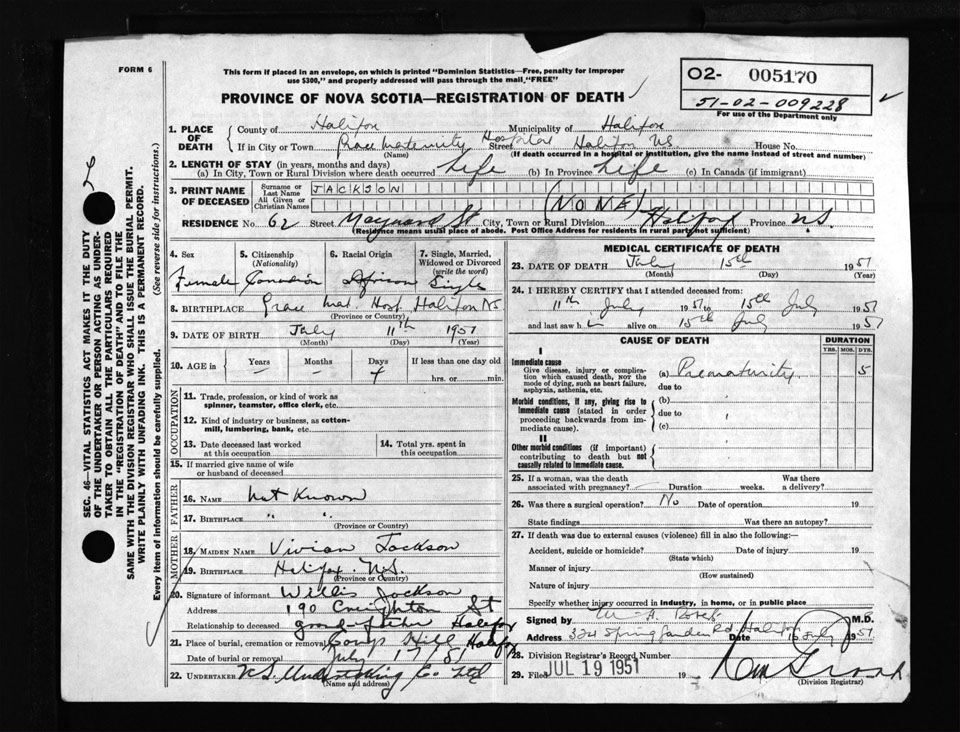 FORM 6
This form if placed in an envelope, on which is printed "Dominion Statistics—Free, penalty for improper
use $300," and properly addressed will pass through the mail "FREE"
PROVINCE OF NOVA SCOTIA—REGISTRATION OF DEATH
O2- 005170
51-02-009228
For use of the Department only
1. PLACE OF DEATH
County of Halifax Municipality of Halifax
If in City or Town Grace Maternity Hospital Street Halifax NS House No.
(Name) (If death occurred in a hospital or institution, give the name instead of street and number)
2. LENGTH OF STAY (in years, months and days)
(a) In City, Town or Rural Division where death occurred Life (b) In Province Life (c) In Canada (if immigrant)
3. PRINT NAME OF DECEASED
Surname or Last Name JACKSON
All Given or Christian Names (NONE)
RESIDENCE No. 62 Street Maynard St City, Town or Rural Division Halifax Province N.S.
(Residence means usual place of abode. Post Office Address for residents in rural parts not sufficient)
4. Sex Female
5. Citizenship (Nationality) Canadian
6. Racial Origin African
7. Single, Married, Widowed or Divorced (write the word) Single
8. BIRTHPLACE Grace Mat Hosp Halifax NS
(Province or Country)
9. DATE OF BIRTH July 11th 1951
(Month) (Day) (Year)
10. AGE in Years Months Days If less than one day old
— — 4 hrs. or min.
OCCUPATION
11. Trade, profession, or kind of work as
spinner, teamster, office clerk, etc.
12. Kind of industry or business, as cotton-
mill, lumbering, bank, etc.
13. Date deceased last worked
at this occupation
14. Total yrs. spent in
this occupation
15. If married give name of wife
or husband of deceased
FATHER
16. NAME Not Known
17. BIRTHPLACE " "
(Province or Country)
MOTHER
18. MAIDEN NAME Vivian Jackson
19. BIRTHPLACE Halifax N.S.
(Province or Country)
20. Signature of informant Willis Jackson
Address 190 Creighton St
Relationship to deceased grand-father Halifax
21. Place of burial, cremation or removal Camp Hill Halifax
Date of burial or removal July 17 51
22. UNDERTAKER N.S. Undertaking Co Ltd
(Name and address)
MEDICAL CERTIFICATE OF DEATH
23. DATE OF DEATH July 15th 1951
(Month) (Day) (Year)
24. I HEREBY CERTIFY that I attended deceased from:
11th July 1951 to 15th July 1951
and last saw h alive on 15th July 1951
CAUSE OF DEATH DURATION
YRS. MOS. DYS.
I
Immediate cause
Give disease, injury or complica-
tion which caused death, NOT the
mode of dying, such as heart failure,
asphyxia, asthenia, etc.
(a) Prematurity 5
due to
Morbid conditions, if any, giving rise to
immediate cause (stated in order
proceeding backwards from im-
mediate cause).
(b)
due to
(c)
II
Other morbid conditions (if important)
contributing to death but not
causally related to immediate cause.
25. If a woman, was the death
associated with pregnancy? Duration weeks. Was there
a delivery?
26. Was there a surgical operation? No Date of operation 19
State findings Was there an autopsy?
27. If death was due to external causes (violence) fill in also the following:—
Accident, suicide or homicide? Date of injury 19
(State which)
Manner of injury
(How sustained)
Nature of injury
Specify whether injury occurred in industry, in home, or in public place
Signed by M.D.
Address 324 Spring Garden Rd Halifax Date 16 July 1951
28. Division Registrar's Record Number
29. Filed JUL 19 1951 19
(Division Registrar)
SEC. 46—VITAL STATISTICS ACT MAKES IT THE DUTY
OF THE UNDERTAKER OR PERSON ACTING AS UNDER-
TAKER TO OBTAIN ALL THE PARTICULARS REQUIRED
IN THE "REGISTRATION OF DEATH" AND TO FILE THE
SAME WITH THE DIVISION REGISTRAR WHO SHALL ISSUE THE BURIAL PERMIT.
WRITE PLAINLY WITH UNFADING INK. THIS IS A PERMANENT RECORD.
Every item of information should be carefully supplied. (See reverse side for instructions.)